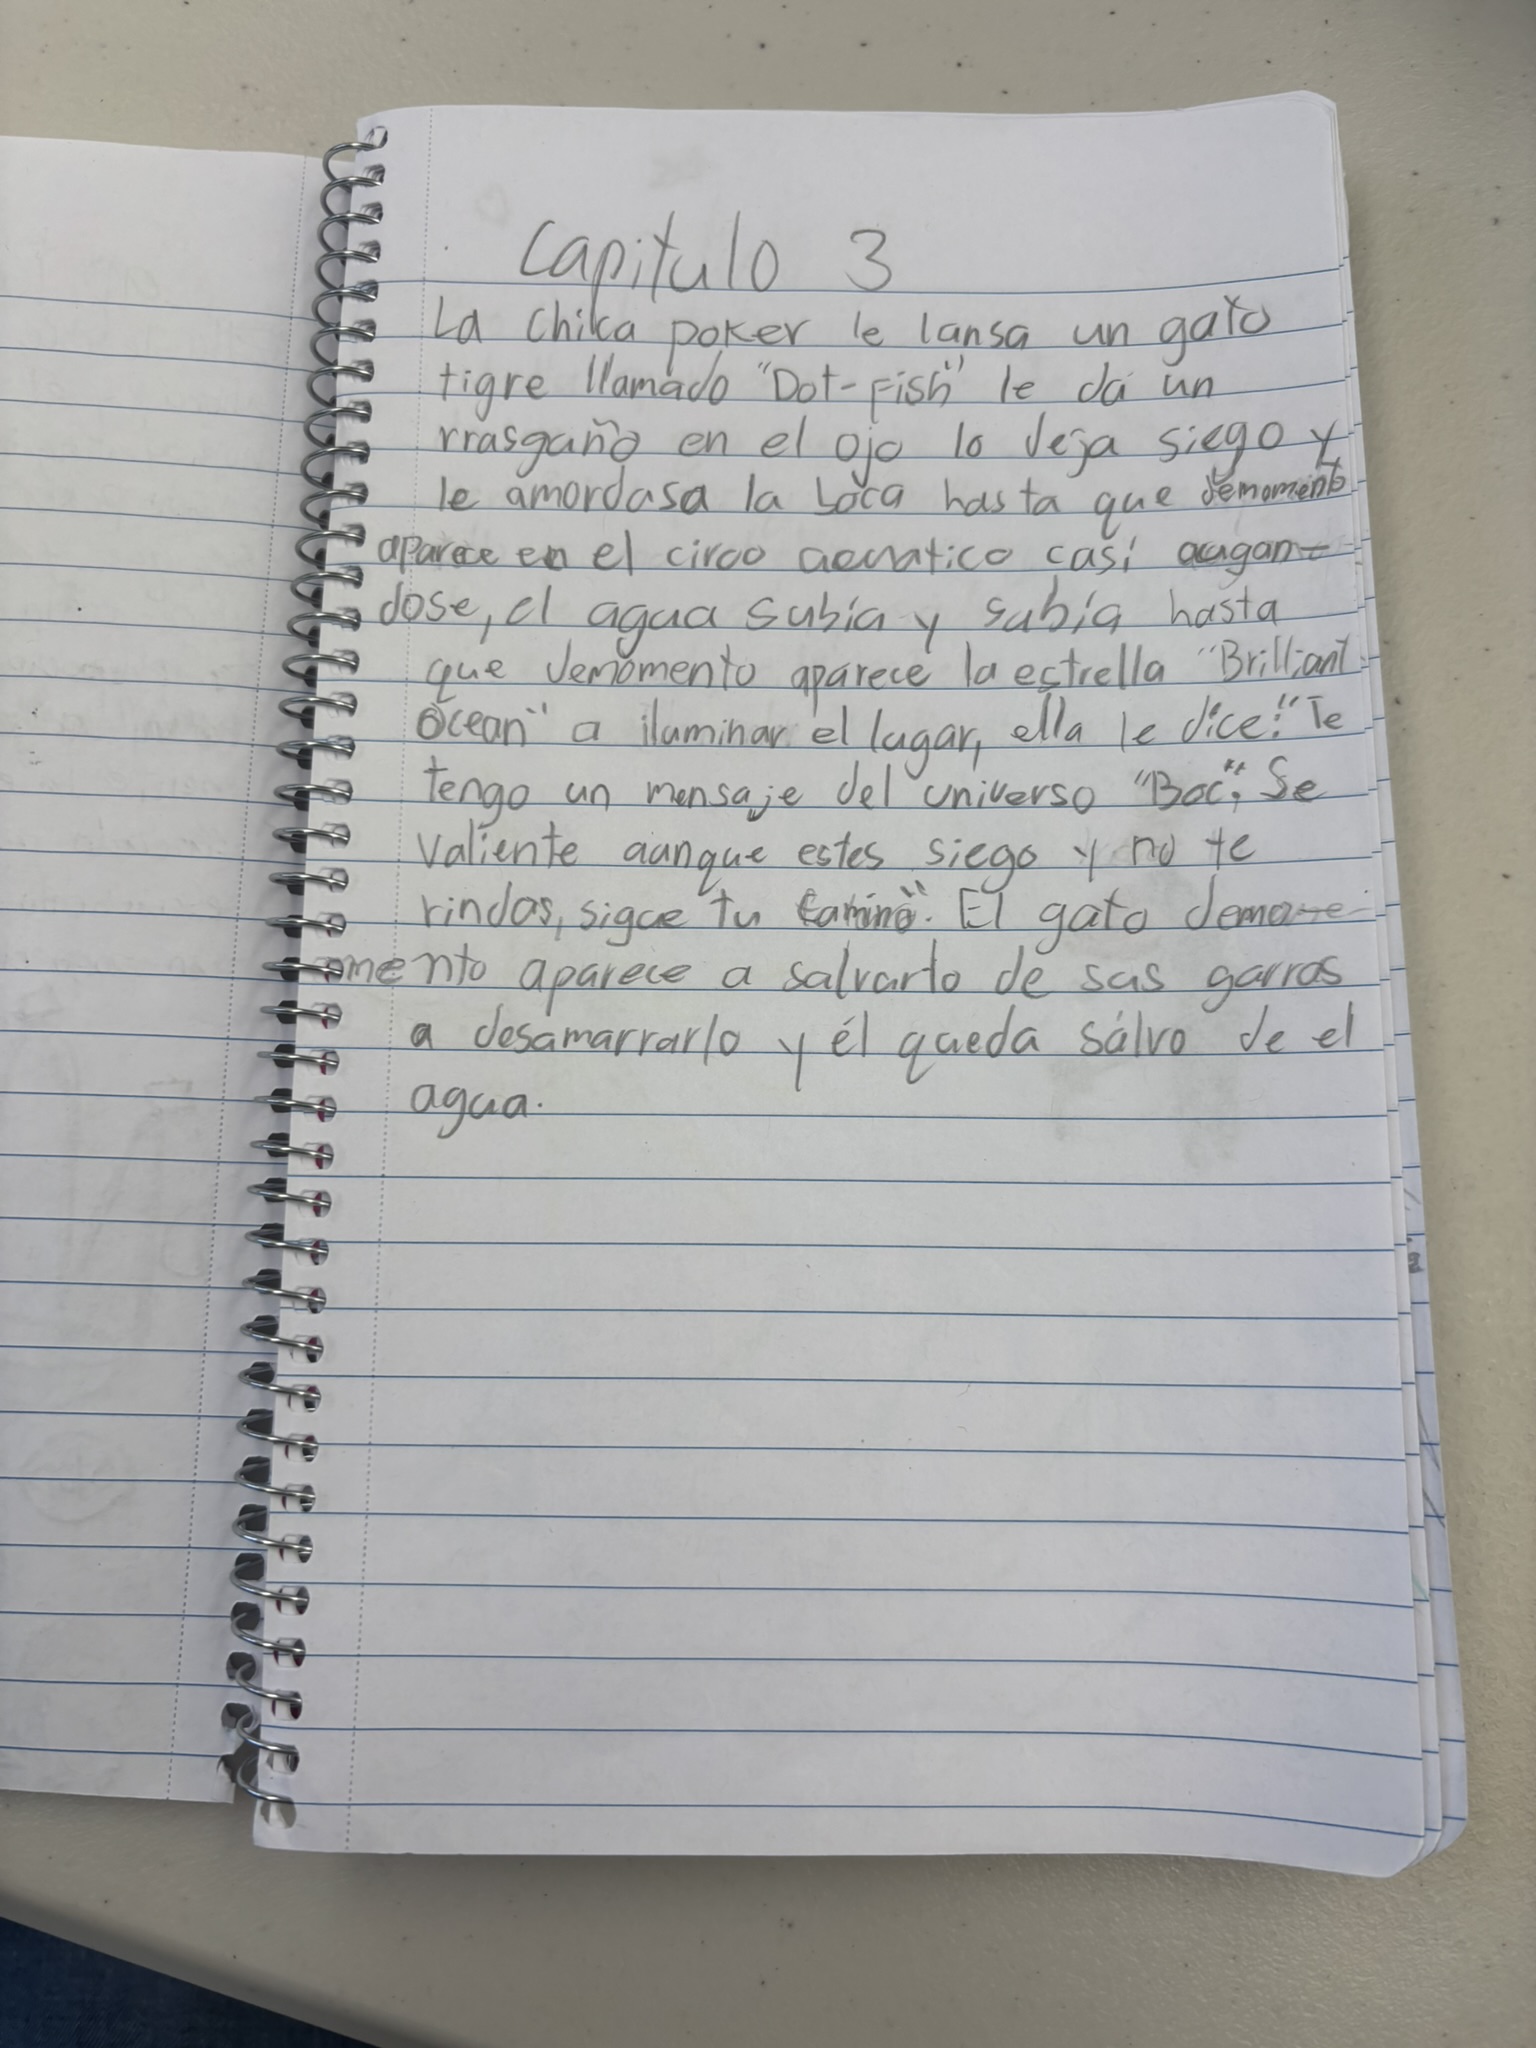 Capitulo 3
La Chika poker le lansa un gato
tigre llamado "Dot-Fish" le dá un
rrasgaño en el ojo lo deja siego y
le amordasa la boca hasta que demomento
aparece en el circo acuatico casi augan-
dose, el agua subía y subía hasta
que demomento aparece la estrella "Brilliant
Ocean" a iluminar el lugar, ella le dice: "Te
tengo un mensaje del universo "Boc", Se
valiente aunque estes siego y no te
rindas, sigue tu camino". El gato demo-
mento aparece a salvarlo de sus garras
a desamarrarlo y él queda sálvo de el
agua.